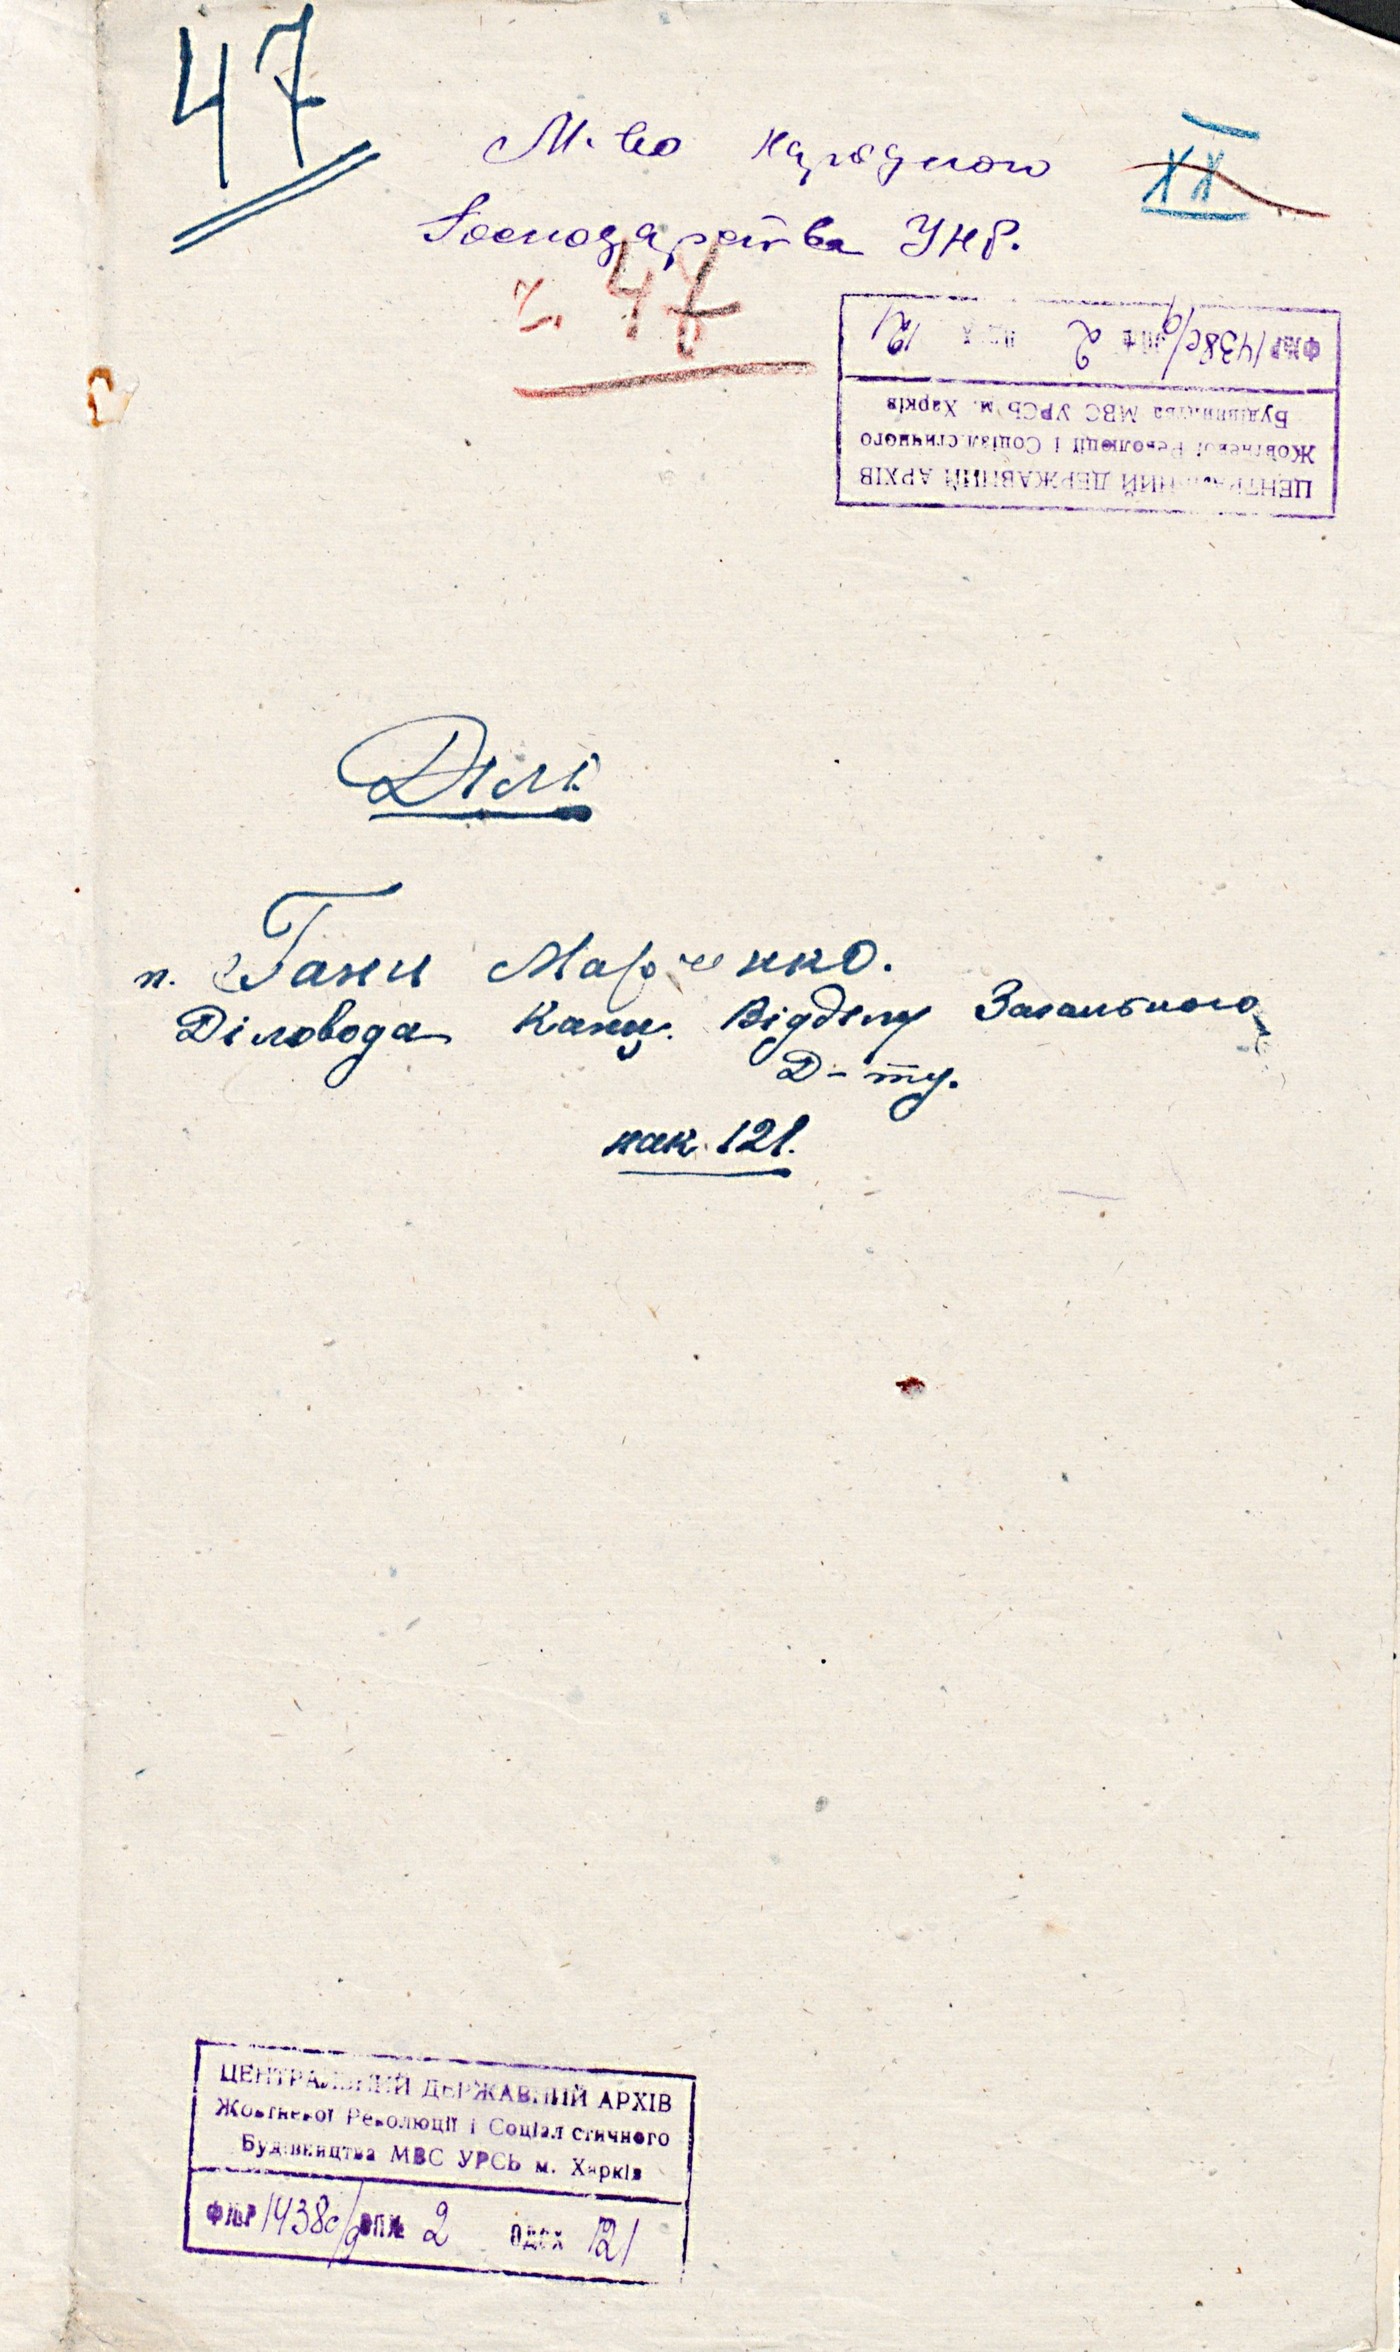 47
М-во народного
Господарства УНР.
XX
ч. 47
ЦЕНТРАЛЬНИЙ ДЕРЖАВНИЙ АРХІВ
Жовтневої Революції і Соціалістичного
Будівництва МВС УРСР м. Харків
Ф№Р 1438с/д оп№ 2 од.сх 121
Діло
п. Гани Марченко.
Діловода Канц. Відділу Загального
Д-ту.
нак. 121.
ЦЕНТРАЛЬНИЙ ДЕРЖАВНИЙ АРХІВ
Жовтневої Революції і Соціалістичного
Будівництва МВС УРСР м. Харків
Ф№Р 1438с/д оп№ 2 од.сх 121